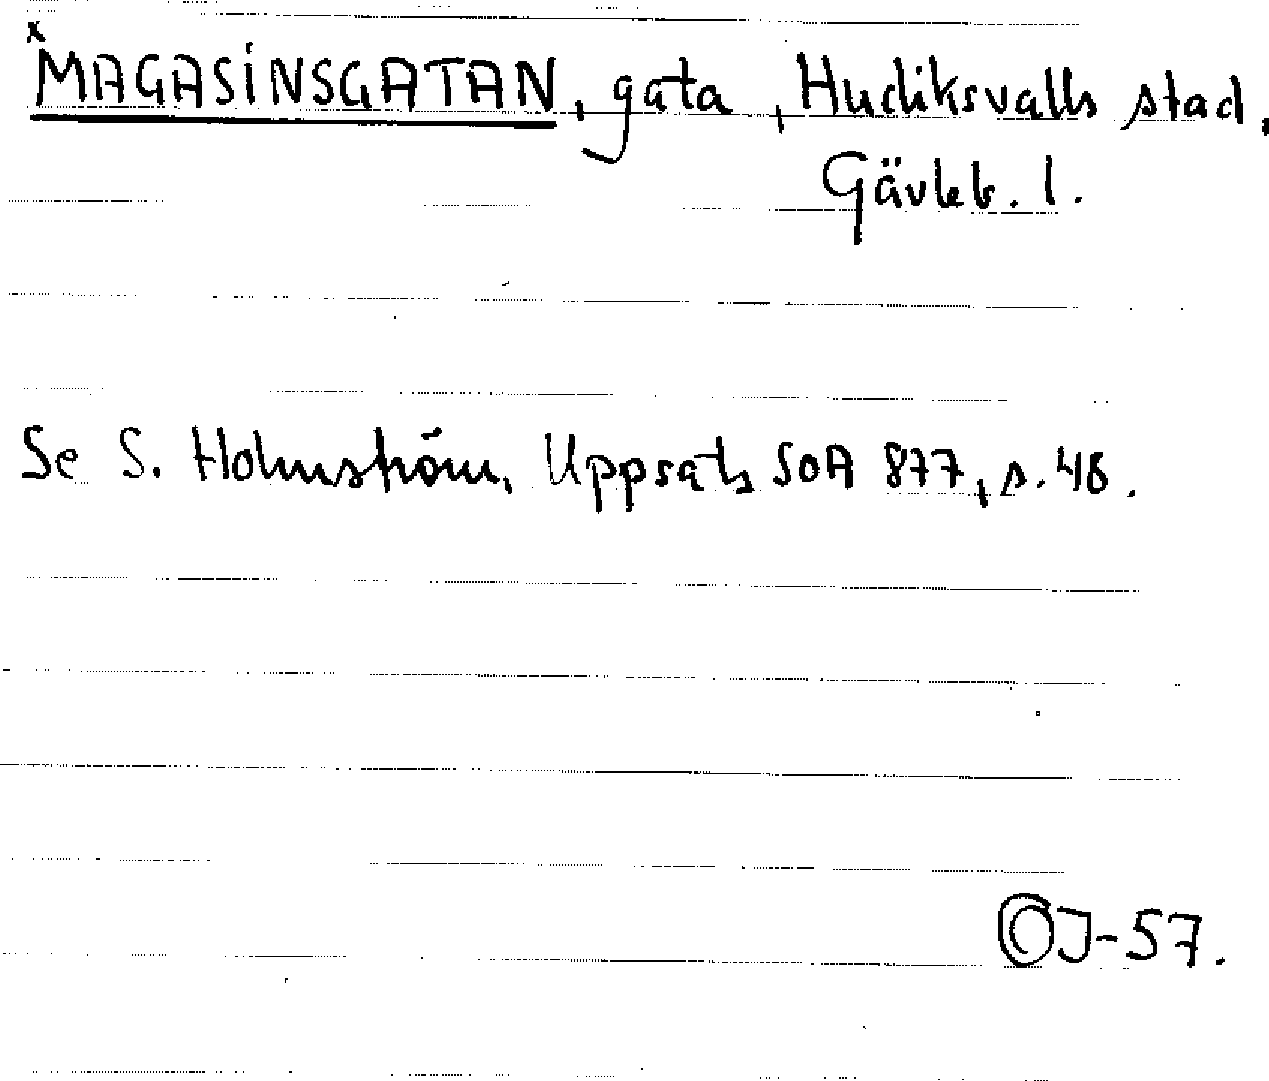 x
MAGASINSGATAN, gata, Hudiksvalls stad,
Gävleb. l.
Se S. Holmström, Uppsats SOA 877, s. 46.
OJ-57.